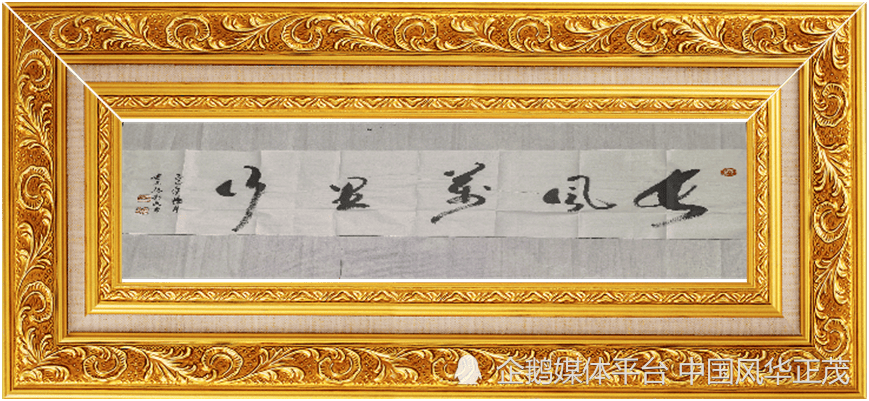 長風萬里行
企鹅媒体平台 中国风华正茂